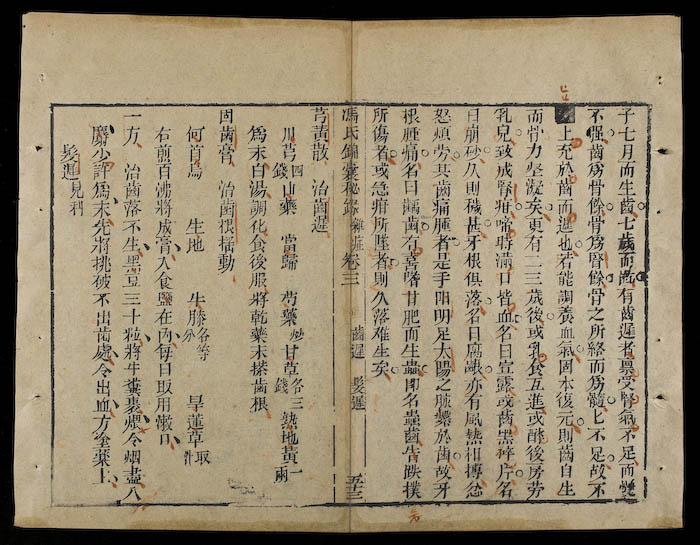 子七月而生齒七歲而齔有齒遲者稟受腎氣不足而髓
不強齒爲骨餘骨爲腎餘骨之所絡而爲髓髓不足故不
上充於齒而遲也若能調養血氣固本復元則齒自生
而骨力堅凝矣更有二三歲後或乳食互進或醉後房勞
乳兒致成腎疳啼時滿口皆血名曰宣露或齒黑碎片名
曰崩砂久則穢甚牙根俱落名曰腐齦亦有風熱相搏忿
怒煩勞其齒痛腫者是手陽明足太陽之脉藥於齒故牙
根腫痛名曰齲齒有蓄嗜甘肥而生蟲即名蟲齒皆跌撲
所傷者或急疳所墜者則久落難生矣
馮氏錦囊秘錄 雜症 卷三 齒遲 髮遲 五十三
芎黃散 治齒遲
川芎四錢 山藥 當歸 芍藥炒 甘草各三錢 熟地黃一兩
爲末白湯調化食後服將乾藥末搽齒根
固齒膏 治齒根搖動
何首烏 生地 牛膝各等分 旱蓮草取汁
右煎百沸將成膏入食鹽在內每日取用噙口
一方 治齒落不生黑豆三十粒將牛糞裹煨令烟盡入
麝少許爲末先將挑破不出齒處令出血方塗藥上
髮遲見科